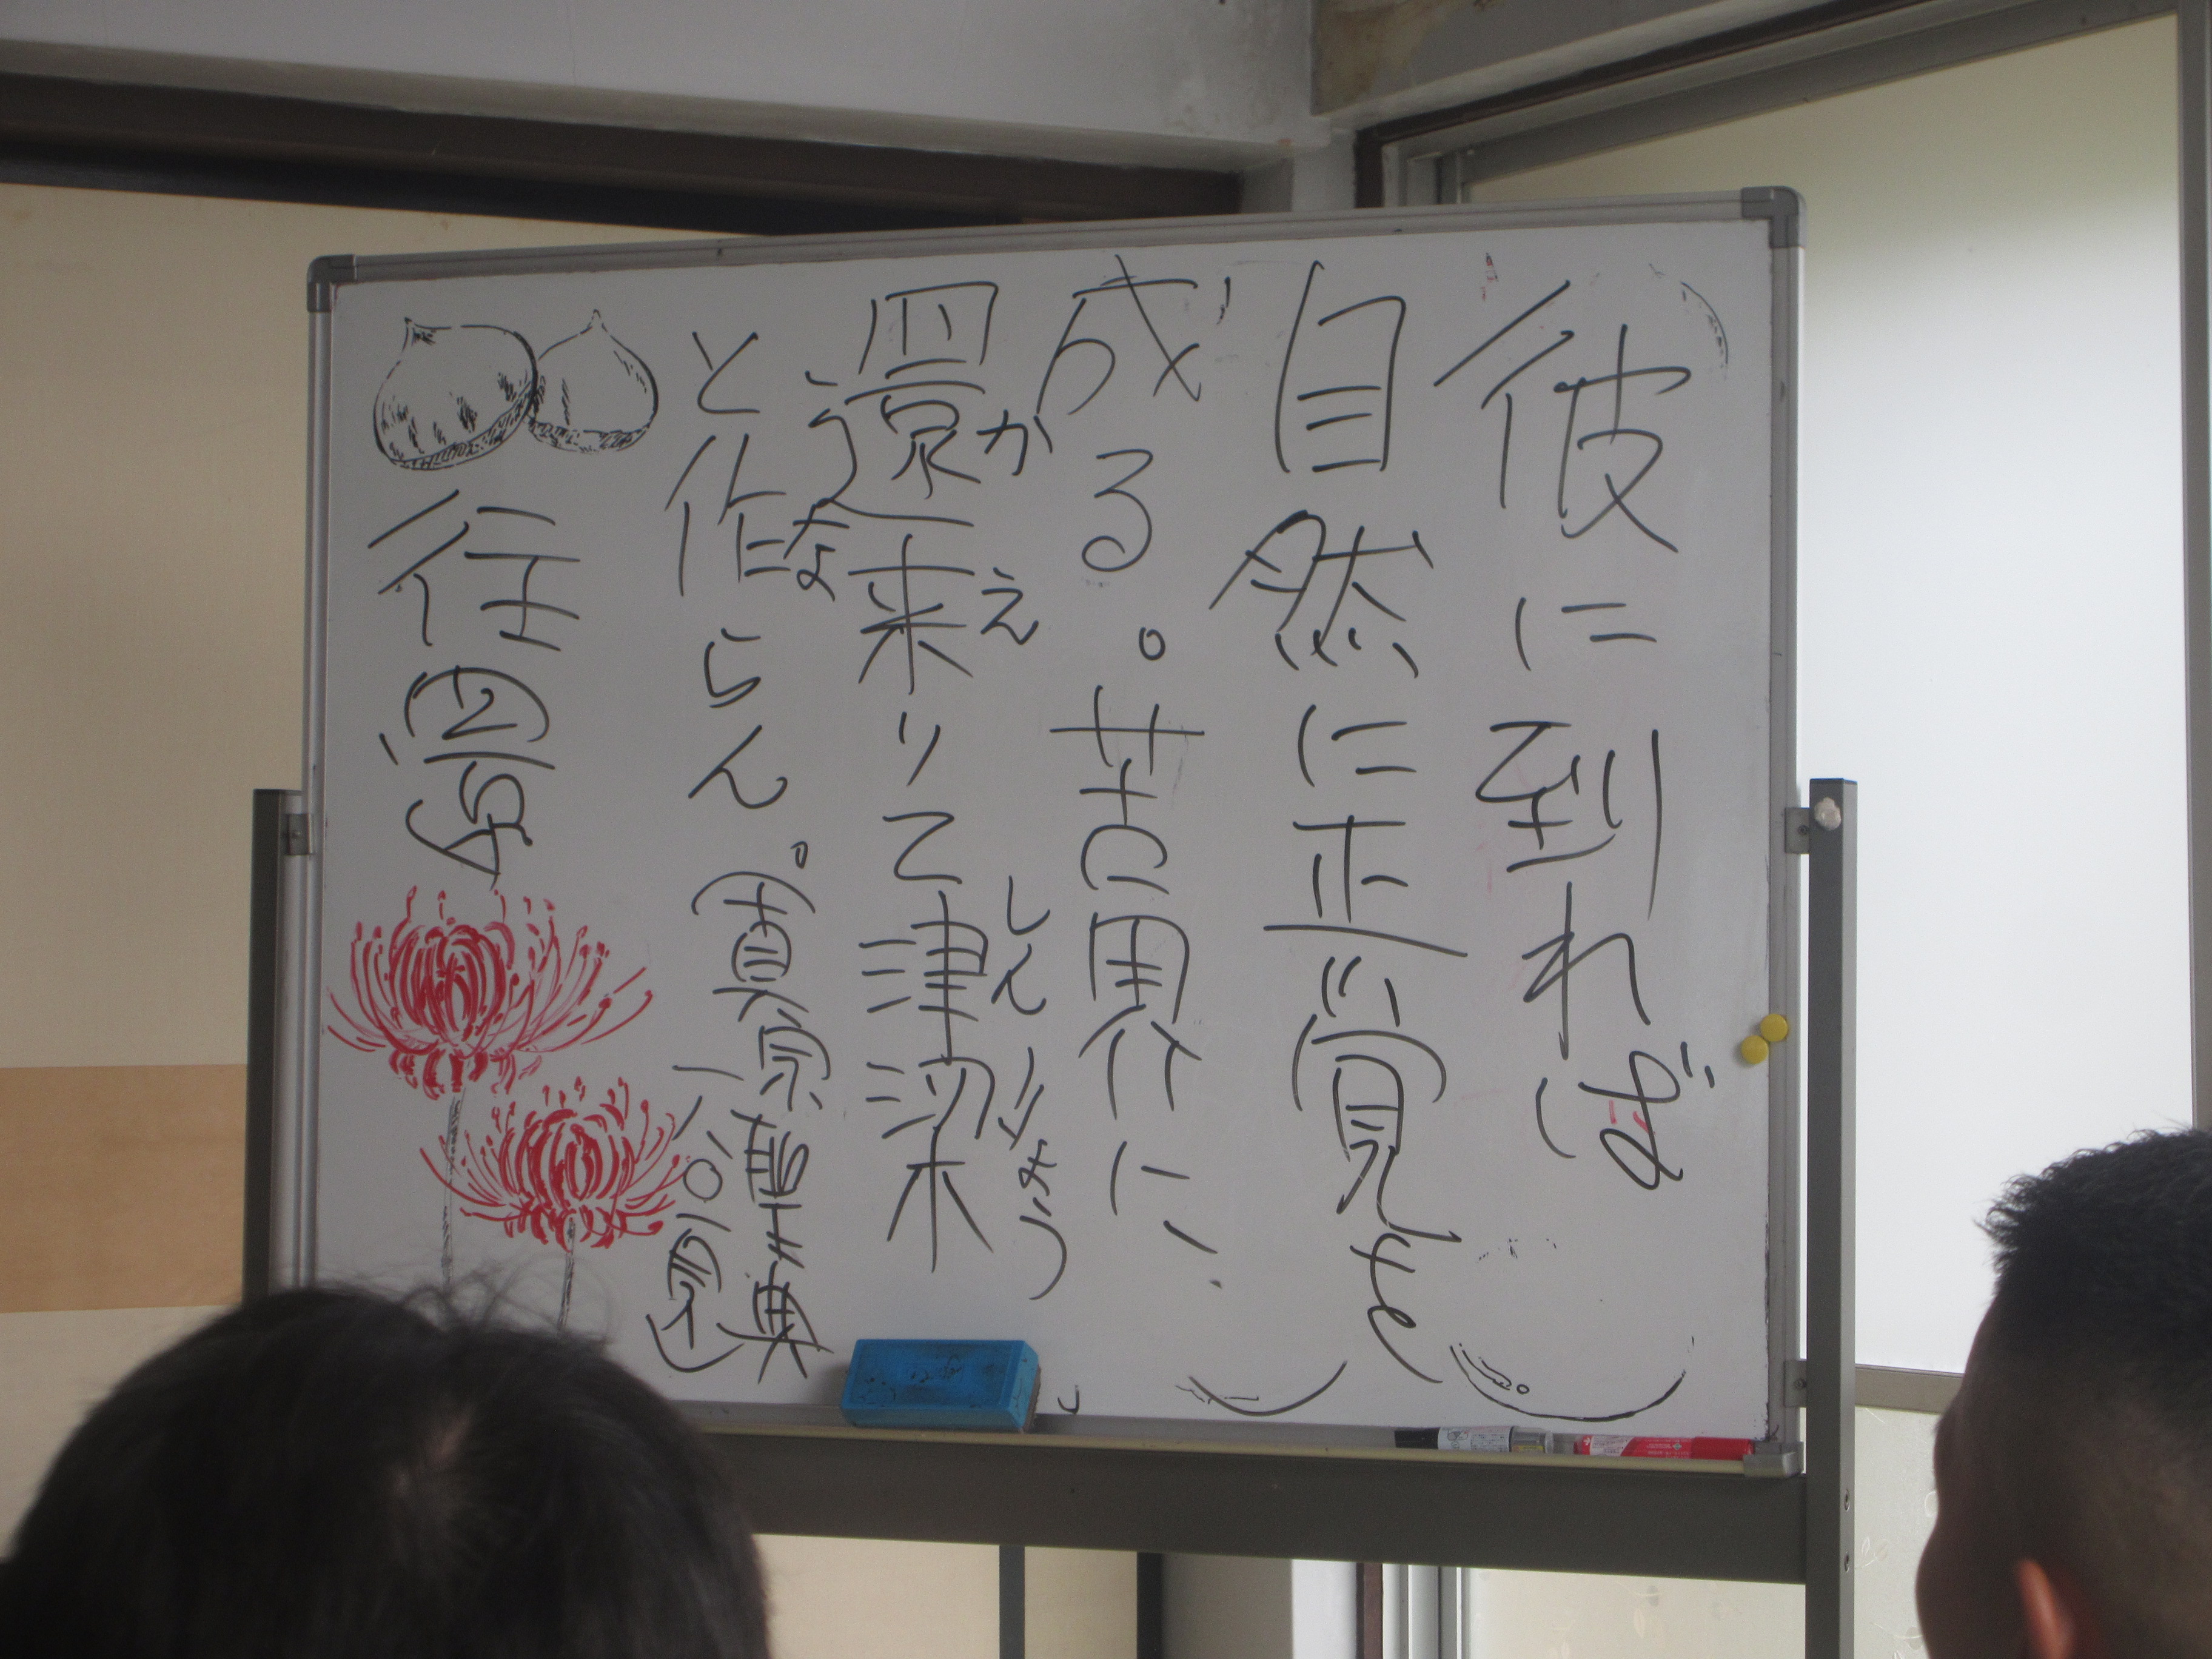 彼に到れば
自然に正覚を
成る。苦界に、
かえ しんりょう
還来りて津梁
な
と作らん。(真宗聖典
往